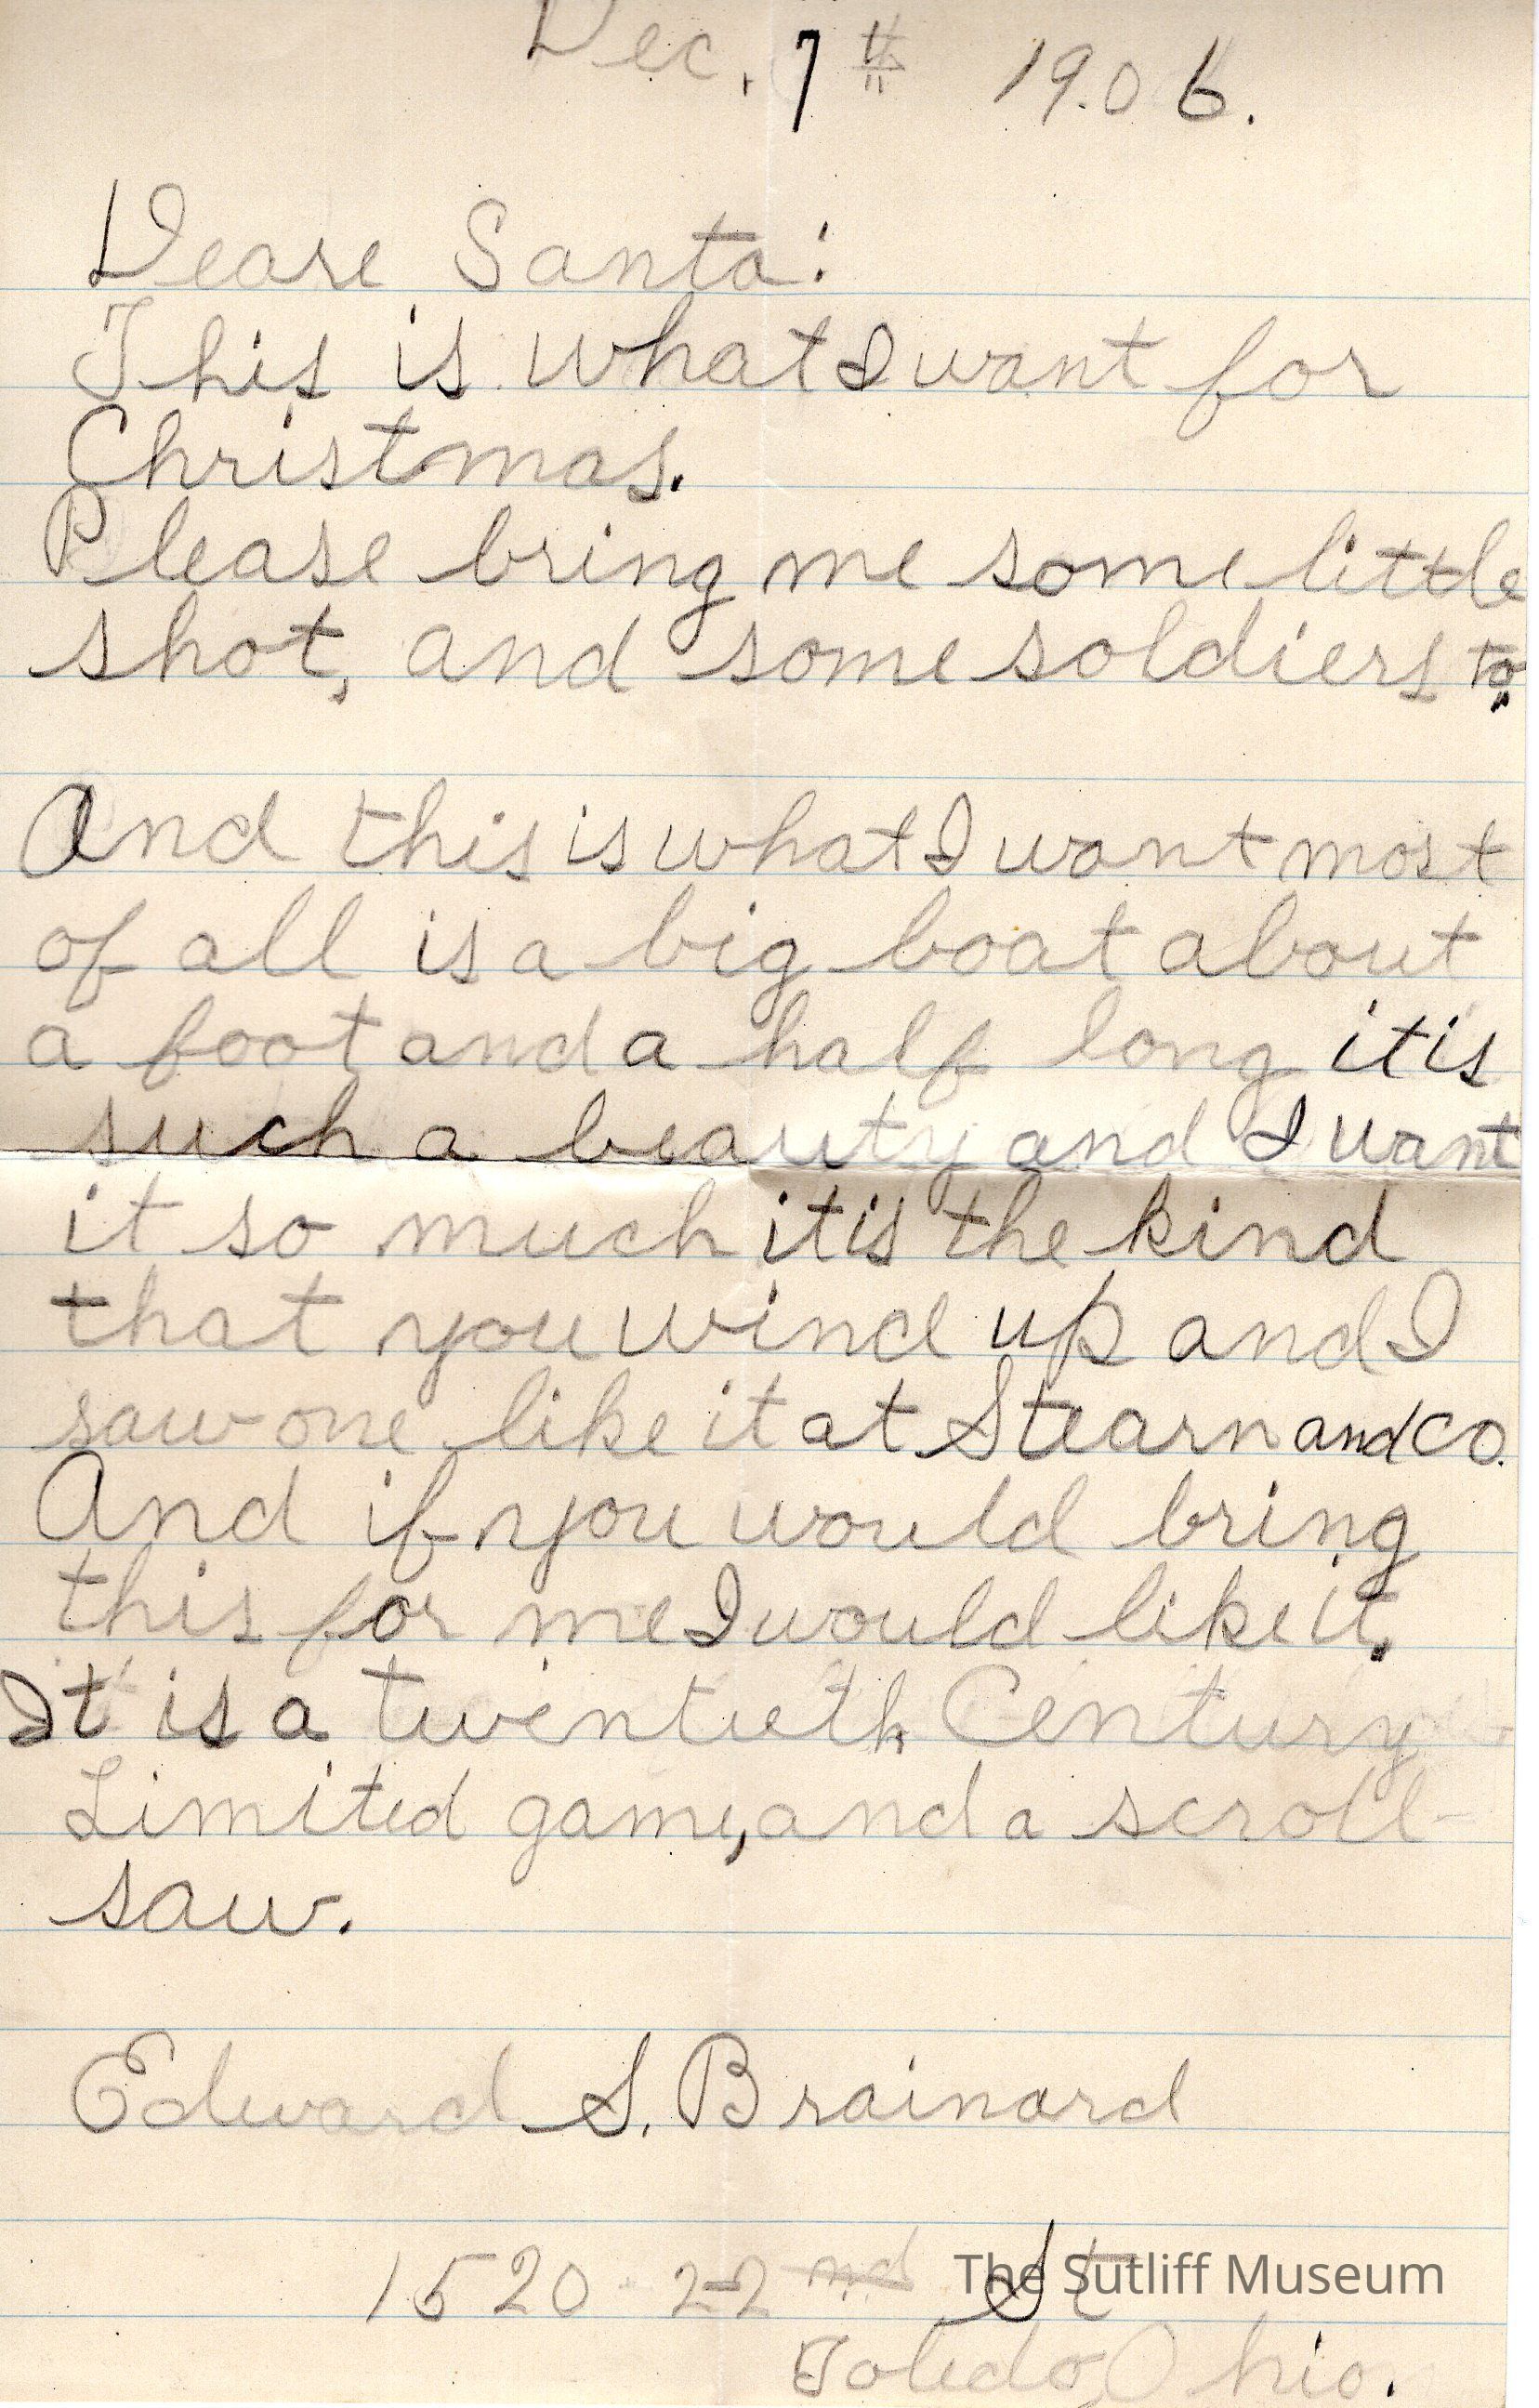 Dec. 7th 19.06.
Deare Santa:
This is what I want for
Christmas.
Please bring me some little
shot, and some soldiers to,
And this is what I want most
of all is a big boat about
a foot and a half long it is
such a beauty and I want
it so much it is the kind
that you wind up and I
saw one like it at Stearn and co.
And if you would bring
this for me I would like it.
It is a twentieth Century
Limited game, and a scroll-
saw.
Edward S. Brainard
1520 22nd St
The Sutliff Museum
Toledo, Ohio.